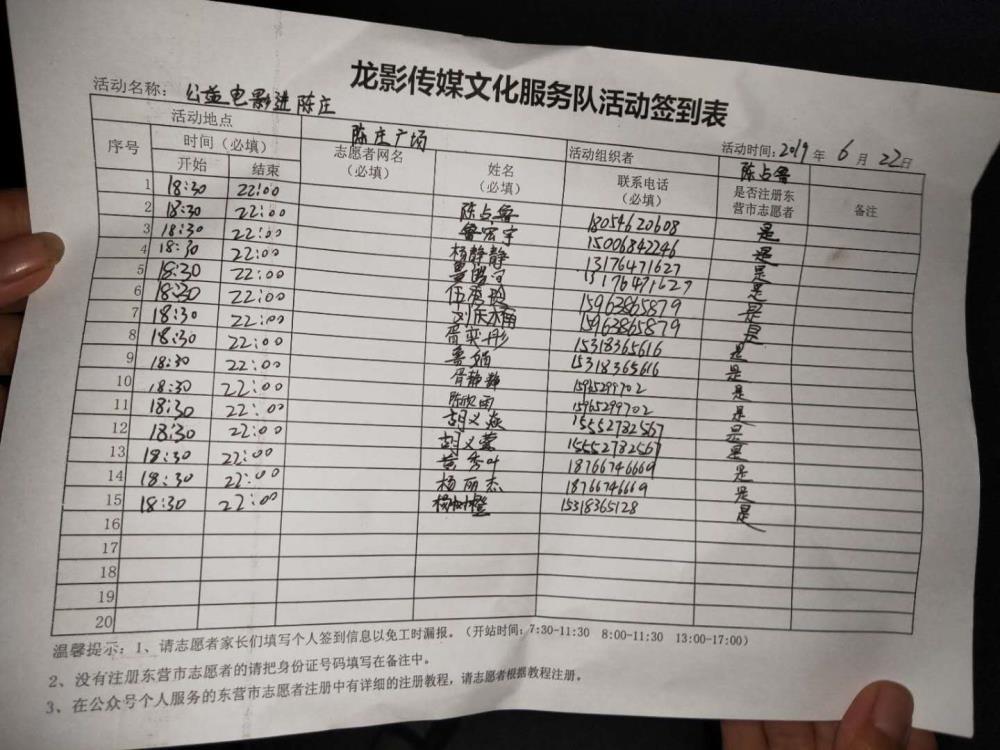 龙影传媒文化服务队活动签到表
活动名称： 公益电影进陈庄
活动时间：2019 年 6 月 22日
活动地点 陈庄广场 活动组织者 陈占鲁
序号 时间（必填） 志愿者网名（必填） 姓名（必填） 联系电话（必填） 是否注册东营市志愿者 备注
开始 结束
1 18:30 22:00 陈占鲁 18054620608 是
2 18:30 22:00 鲁宏宇 15006842246 是
3 18:30 22:00 杨静静 13176471627 是
4 18:30 22:00 13176471627 是
5 18:30 22:00 15963865879 是
6 18:30 22:00 15963865879 是
7 18:30 22:00 胥奕彤 15318365616 是
8 18:30 22:00 15318365616 是
9 18:30 22:00 胥静静 15965299702 是
10 18:30 22:00 陈欣雨 15965299702 是
11 18:30 22:00 胡义燕 15552782567 是
12 18:30 22:00 胡义蒙 15552782567 是
13 18:30 22:00 黄秀叶 18766746669 是
14 18:30 22:00 杨丽杰 18766746669 是
15 18:30 22:00 杨树橙 15318365128 是
16
17
18
19
20
温馨提示：1、请志愿者家长们填写个人签到信息以免工时漏报。（开站时间：7:30-11:30 8:00-11:30 13:00-17:00）
2、没有注册东营市志愿者的请把身份证号码填写在备注中。
3、在公众号个人服务的东营市志愿者注册中有详细的注册教程，请志愿者根据教程注册。